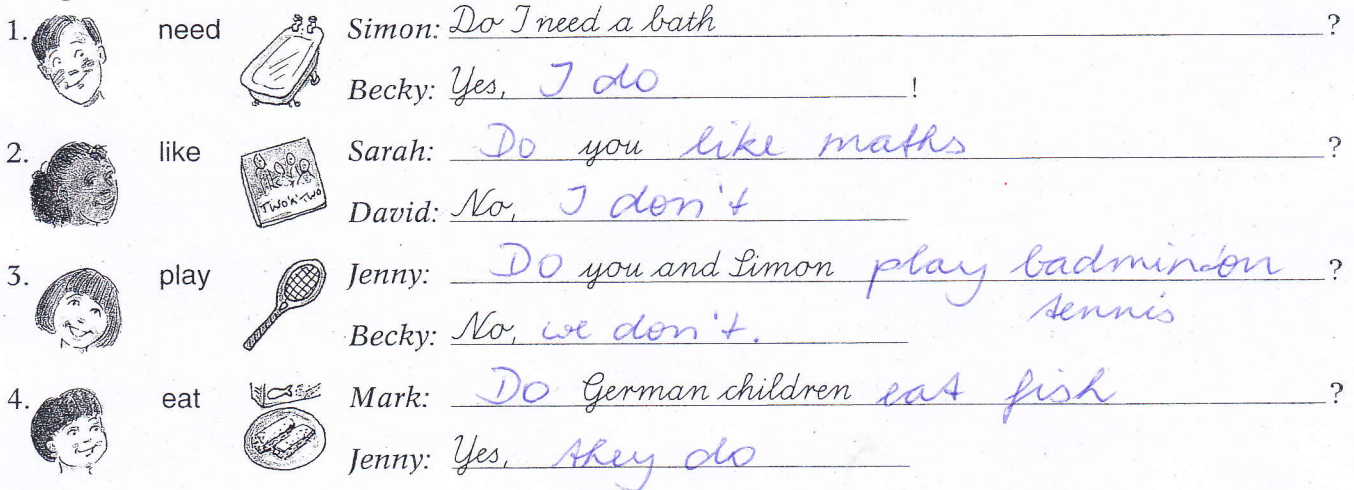 1. need Simon: Do I need a bath ?
Becky: Yes, I do !
2. like Sarah: Do you like maths ?
TWO'N'TWO
David: No, I don't
3. play Jenny: Do you and Simon play badminton ?
tennis
Becky: No, we don't.
4. eat Mark: Do German children eat fish ?
Jenny: Yes, they do